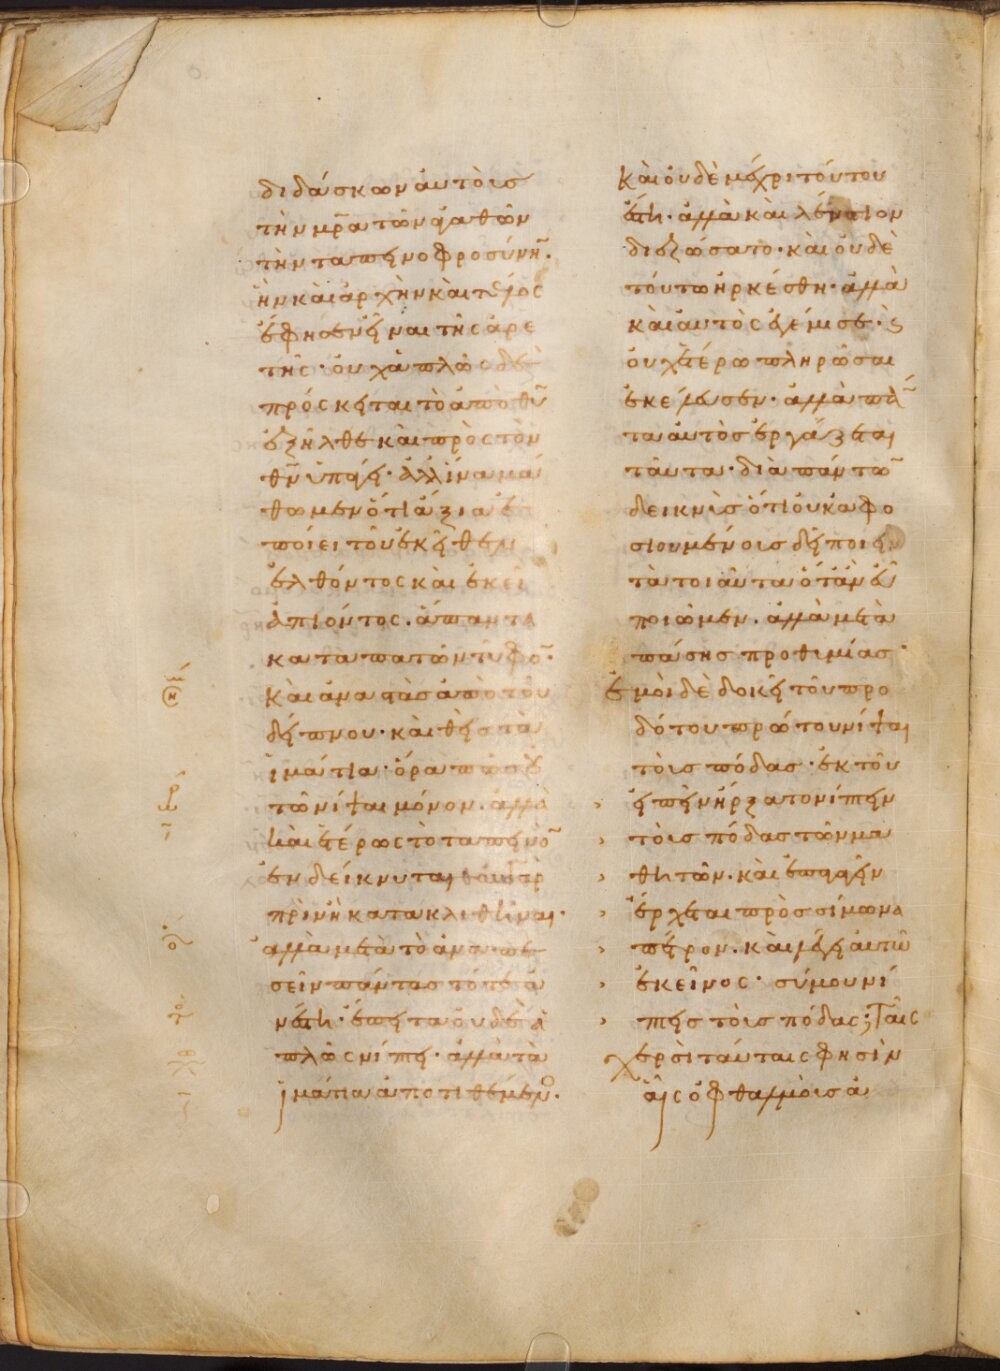 διδάσκων ἀυτοὺς
τὴν μρ̅α τῶν ἀγαθῶν
τὴν ταπεινοφροσύνη̅·
ἣν καὶ ἀρχὴν καὶ τέλος
ἔφησεν εἶναι τῆς ἀρε
τῆς· ὀυχ ἁπλῶς δὲ
πρόσκειται τὸ ἀπὸ θυ̅
ἐξῆλθε καὶ πρὸς τὸν
θν̅ ὑπάγει· ἀλλ ἵνα μά
θωμεν ὅτι ἄξια ἐ
ποίει τοῦ ἐκεῖθεν
ἐλθόντος καὶ ἐκεῖ
ἀπιόντος· ἅπαντα
καταπατῶν τύφο̅·
Καὶ ἀναστὰς ἀπὸ τοῦ
δείπνου· καὶ θεὶς τὰ
ἱμάτια· ὅρα πῶς ὀυ
τῶ νίψαι μόνον· ἀλλὰ
καὶ ἑτέρως τὸ ταπεινὸ̅
ἐνδείκνυται· ὀυ γὰρ
πρὶν ἢ κατακλιθῆναι·
ἀλλὰ μετὰ τὸ ἀναπε
σεῖν πάντας τότε ἀ
νέστη· ἔπειτα ὀυδὲ ἁ
πλῶς νίπτει· ἀλλὰ τὰ
ἱμάτια ἀποτιθέμενο·
Καὶ ὀυδὲ μέχρι τούτου
ἔστη· ἀλλὰ καὶ λέντιον
διεζώσατο· καὶ ὀυδὲ
τούτω ἠρκέσθη· ἀλλὰ
καὶ ἀυτὸς ἐγέμισε· ϗ
ὀυχ ἑτέρω πληρῶσαι
ἐκέλευσεν· ἀλλὰ πά̅
τα ἀυτὸς ἐργάζεται
ταῦτα· διὰ πάντω̅
δεικνὺς ὅτι ὀυκ ἀφο
σιουμένοις δεῖ ποιεῖν
τὰ τοιαῦτα ὅταν ἐυ
ποιῶμεν· ἀλλὰ μετὰ
πάσης προθυμίας·
Ἐμοὶ δὲ δοκεῖ τοῦ προ
δότου πρώτου νίψαι
τοὺς πόδας· ἐκ τοῦ
› ἐιπεῖν ἤρξατο νίπτειν
› τοὺς πόδας τῶν μα
› θητῶν· καὶ ἐπαγαγεῖν
› ἔρχεται πρὸς σίμωνα
› πέτρον· καὶ λέγει ἀυτῶ
› ἐκεῖνος· σύ μου νί
› πτεις τοὺς πόδας; Ταῖς
χερσὶ ταύταις φησὶν
αἷς ὀφθαλμοὺς ἀ